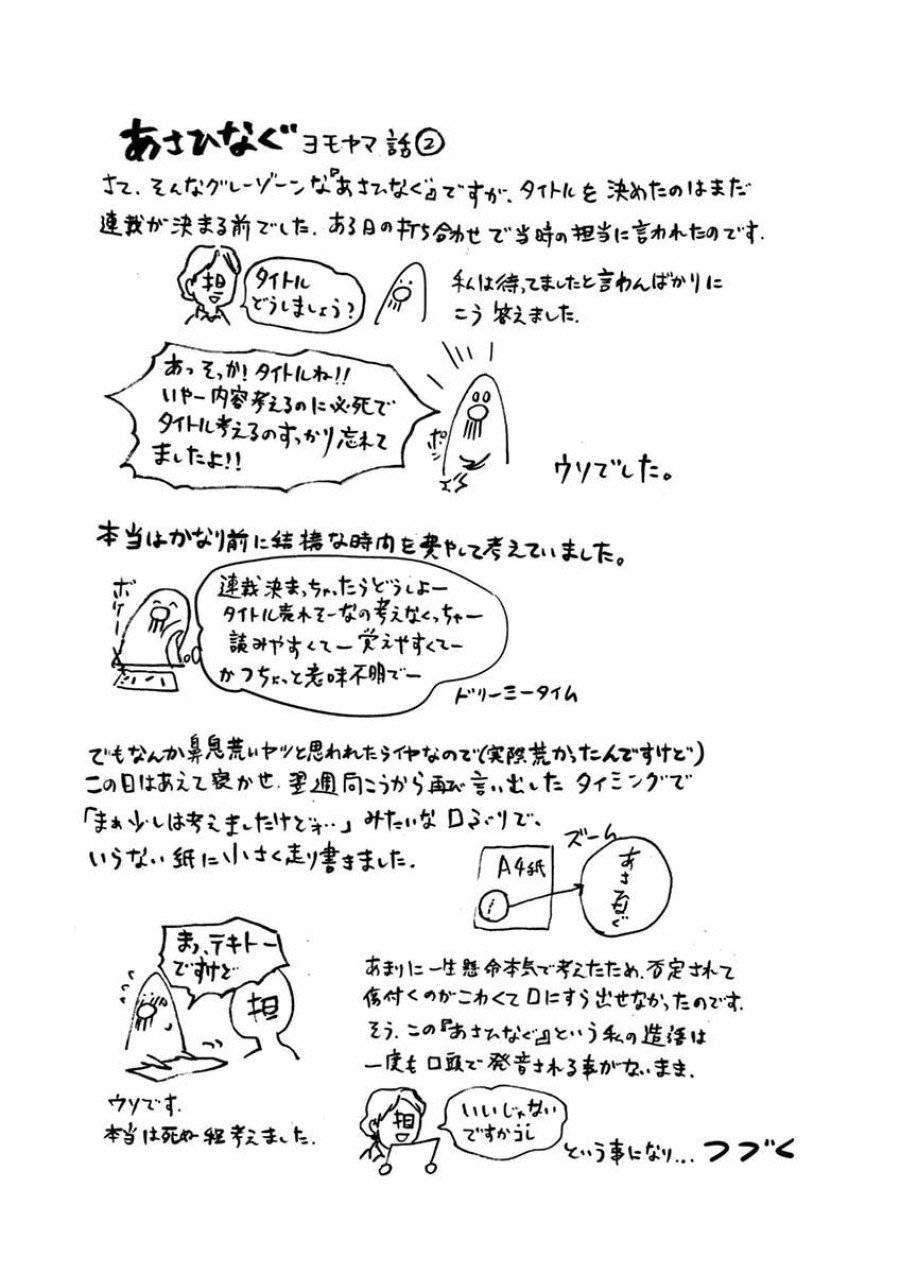 あさひなぐ ヨモヤマ話②
さて、そんなグレーゾーンな『あさひなぐ』ですが、タイトルを決めたのはまだ
連載が決まる前でした。ある日の打ち合わせで当時の担当に言われたのです。
担
タイトル
どうしましょう?
私は待ってましたと言わんばかりに
こう答えました。
あっそっか!タイトルね!!
いやー内容考えるのに必死で
タイトル考えるのすっかり忘れて
ましたよ!!
ポン
ウソでした。
本当はかなり前に結構な時間を費やして考えていました。
ポケ〜
連載決まっちゃったらどうしよー
タイトル売れそーなの考えなくっちゃー
読みやすくてー覚えやすくてー
かつちょっと意味不明でー
ドリーミータイム
でもなんか鼻息荒いヤツと思われたらイヤなので(実際荒かったんですけど)
この日はあえて寝かせ、翌週向こうから再び言い出したタイミングで
「まぁ少しは考えましたけどォ…」みたいな口ぶりで、
いらない紙に小さく走り書きました。
A4紙
ズーム
あさひなぐ
まっ、テキトー
ですけど
担
ウソです。
本当は死ぬ程考えました。
あまりに一生懸命本気で考えたため、否定されて
傷付くのがこわくて口にすら出せなかったのです。
そう、この『あさひなぐ』という私の造語は
一度も口頭で発音される事がないまま、
担
いいじゃない
ですかコレ
という事になり... つづく